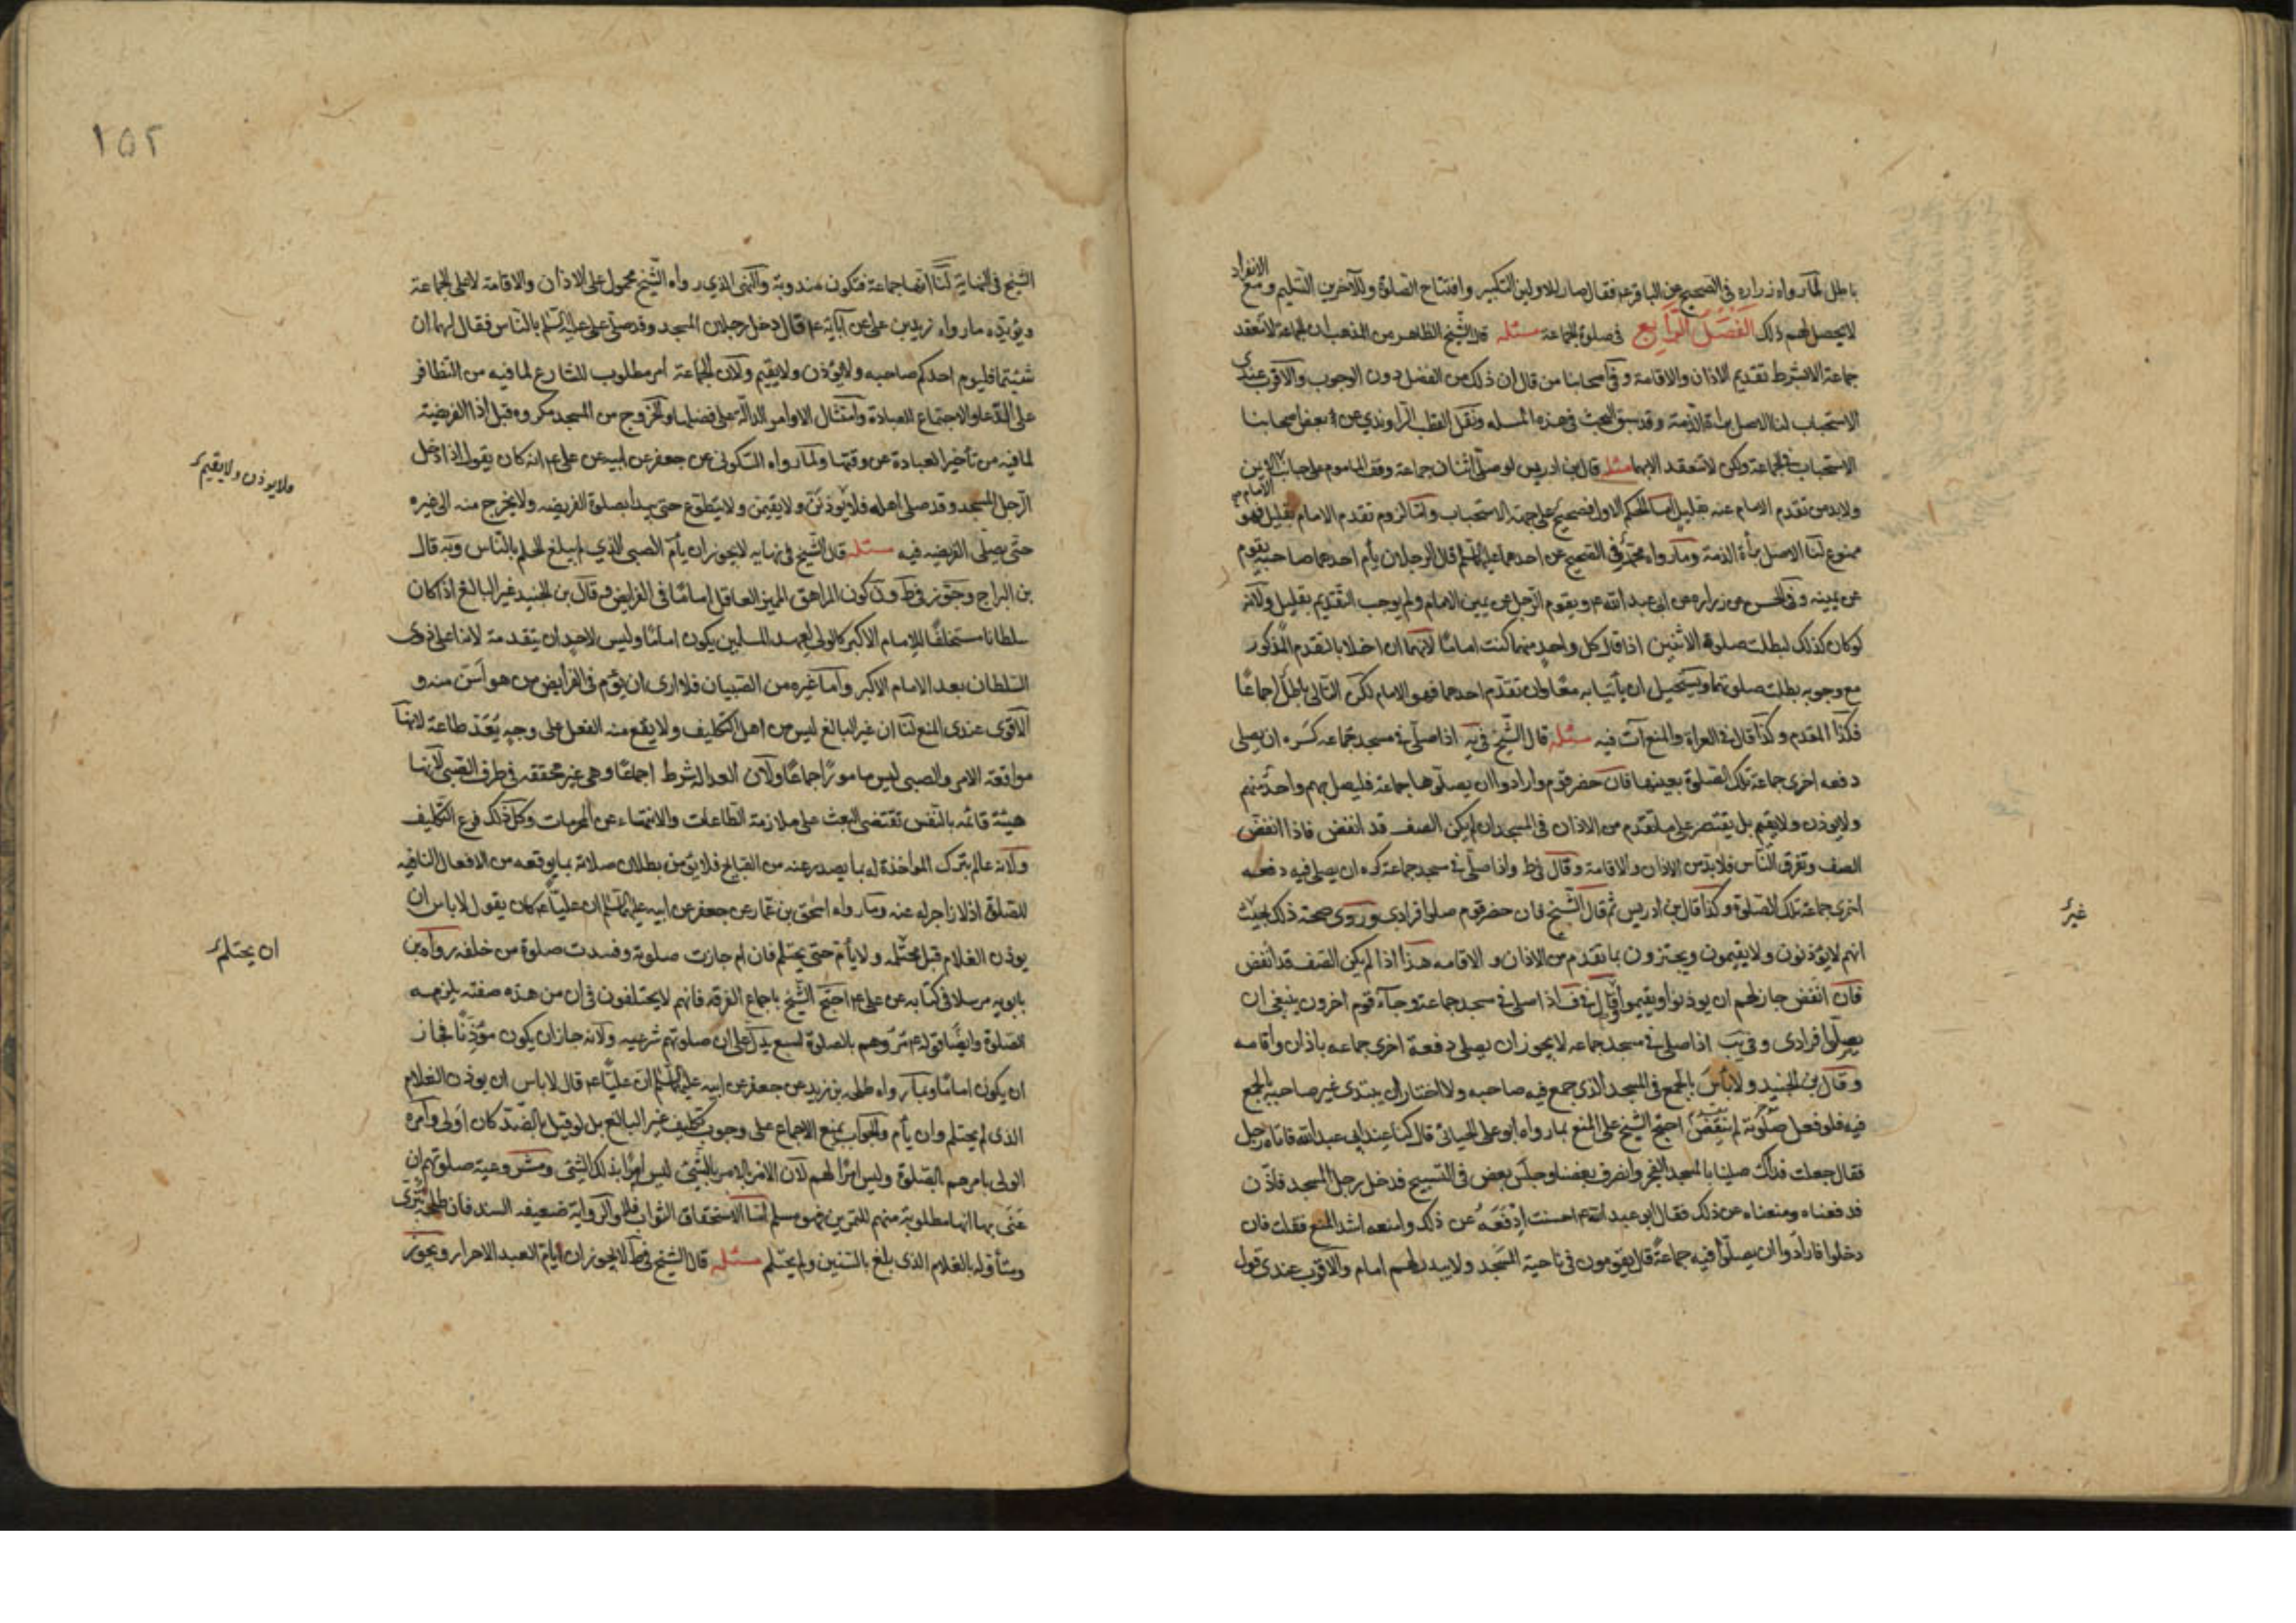 باطل لما رواه زراره فى الصحيح عن الباقر عم فقال صار للاولين التكبير وافتتاح الصلوة وللآخرين التسليم ومع الانفراد
لايحصل لهم ذلك الفصل الرابع فى صلوة الجماعة مسئله قال الشيخ الظاهر من المذهب ان الجماعة لا تنعقد
جماعة الا بشرط تقديم الاذان والاقامة وفى اصحابنا من قال ان ذلك من الفضل دون الوجوب والاقرب عندى
الاستحباب لنا الاصل براة الذمة وقد سبق البحث فى هذه المسله ونقل القطب الراوندي عن بعض اصحابنا
الاستحباب فى الجماعة ولكن لا تنعقد الا بهما مسئله قال بن ادريس لو صلى اثنان جماعة وقف الماموم على جانب الايمن
ولابد من تقدم الامام عنه بقليل اما الحكم الاول فصحيح على جهة الاستحباب واما لزوم تقدم الامام بقليل فهو
ممنوع لنا الاصل براة الذمة وما رواه محمد فى الصحيح عن احدهما عليهما السلم قال الرجلان يأم احدهما صاحبه يقوم
عن يمينه وفى الحسن عن زراره عن ابى عبد الله عم ويقوم الرجل عن يمين الامام ولم يوجب التقديم بقليل ولانه
لو كان كذلك لبطلت صلوة الاثنين اذا قال كل واحد منهما كنت اماما لانهما ان اخلا بالتقدم المذكور
مع وجوبه بطلت صلوتهما ويستحيل ان يأتيا به معا وان تقدم احدهما فهو الامام لكن التالى باطل اجماعا
فكذا المقدم وكذا قال فى العراة والمنع آت فيه مسئله قال الشيخ فى يه اذا صلى فى مسجد جماعه كره ان يصلى
دفعه اخرى جماعة تلك الصلوة بعينها فان حضر قوم وارادوا ان يصلوها جماعة فليصل بهم واحد منهم
ولايوذن ولايقيم بل يقتصر على ما تقدم من الاذان فى المسجد ان لم يكن الصف قد انفض فاذا انفض
الصف وتفرق الناس فلابد من الاذان والاقامة وقال فى ط واذا صلى فى مسجد جماعة كره ان يصلى فيه دفعه
اخرى جماعة تلك الصلوة وكذا قال بن ادريس ثم قال الشيخ فان حضر قوم صلوا فرادى وروى صحة ذلك بحيث
انهم لايؤذنون ولايقيمون ويجتزون بما تقدم من الاذان والاقامه هذا اذا لم يكن الصف قد انفض
فان انفض جاز لهم ان يوذنوا ويقيموا وقال فى ف اذا صلى فى مسجد جماعة وجاء قوم اخرون ينبغى ان
يصلوا فرادى وفى يب اذا صلى فى مسجد جماعه لايجوز ان يصلى دفعة اخرى جماعه باذان واقامه
وقال بن الجنيد ولابأس بالجمع فى المسجد الذى جمع فيه صاحبه ولا اختار ان يبتدى غير صاحبه بالجمع
فيه فلو فعل صلوته لم ينتقض احتج الشيخ على المنع بما رواه ابو على الحيانى قال كنا عند ابى عبد الله فاتاه رجل
فقال جعلت فداك صلينا بالمسجد الفجر وانصرف بعضنا وجلس بعض فى التسبيح فدخل رجل المسجد فاذن
فدفعناه ومنعناه عن ذلك فقال ابى عبد الله عم احسنت ادفعه عن ذلك وامنعه اشد المنع فقلت فان
دخلوا فارادوا ان يصلوا فيه جماعة قال يقومون فى ناحية المسجد ولا يبدر لهم امام والاقرب عندى قول
غير
١٥٢
الشيخ فى النهاية لنا انها جماعة فتكون مندوبة والنهى الذي رواه الشيخ محمول على الاذان والاقامة لا على الجماعة
ويؤيده ما رواه زيد بن على عن آبائه عم قال دخل رجلان المسجد وقد صلى على عليه السلم بالناس فقال لهما ان
شئتما فليوم احدكما صاحبه ولايؤذن ولايقيم ولان الجماعة امر مطلوب للشارع لما فيه من التظافر
على الدعا والاجتماع للعبادة وامتثال الاوامر الدالة على فضلها والخروج من المسجد مكروه قبل اذا الفريضة
لما فيه من تأخير العبادة عن وقتها ولما رواه السكونى عن جعفر عن ابيه عن على عم انه كان يقول اذا دخل
الرجل المسجد وقد صلى اهله فلايوذنن ولايقيمن ولايتطوع حتى يبدا بصلوة الفريضه ولايخرج منه الى غيره
حتى يصلى الفريضه فيه مسئله قال الشيخ فى نهايه لايجوز ان يأم الصبى الذي لم يبلغ الحلم بالناس وبه قال
بن البراج وجوز فى ط و ف كون المراهق المميز العاقل اماما فى الفرايض وقال بن الجنيد غير البالغ اذا كان
سلطانا مستخلفا للامام الاكبر كالولى لعهد المسلمين يكون اماما وليس لاحد ان يتقدمه لانه اعلى ذوى
السلطان بعد الامام الاكبر واما غيره من الصبيان فلا ارى ان يؤم فى الفرايض من هو اسن منه و
الاقوى عندى المنع لنا ان غير البالغ ليس من اهل التكليف ولايقع منه الفعل على وجه يعد طاعة لانها
موافقة الامر والصبى ليس مامورا اجماعا ولان العداله شرط اجماعا وهى غير محققه فى طرف الصبى لانها
هيئة قائمه بالنفس تقتضى البعث على ملازمة الطاعات والانتهاء عن المحرمات وكل ذلك فرع التكليف
ولانه عالم بترك المواخذة له بما يصدر عنه من القبايح فلايؤمن بطلان صلاته بما يوقعه من الافعال المنافيه
للصلوة اذ لا زاجر له عنه وما رواه اسحق بن عمار عن جعفر عن ابيه عليهما السلم ان عليا عم كان يقول لاباس ان
يوذن الغلام قبل يحتلم ولايأم حتى يحتلم فان ام جازت صلوته وفسدت صلوة من خلفه رواه بن
بابويه مرسلا فى كتابه عن على عم احتج الشيخ باجماع الفرقه فانهم لايختلفون فى ان من هذه صفته يلزمه
الصلوة وايضا قوله عم مروهم بالصلوة لسبع يدل على ان صلوتهم شرعيه ولانه جاز ان يكون مؤذنا فجاز
ان يكون اماما وبما رواه طلحه بن زيد عن جعفر عن ابيه عليهما السلم ان عليا عم قال لاباس ان يوذن الغلام
الذى لم يحتلم وان يأم والجواب بمنع الاجماع على وجوب تكليف غير البالغ بل لو قيل بالضد كان اولى وامره
الولى بامرهم بالصلوة وليس امرا لهم لان الامر بالامر بالشئ ليس امرا بذلك الشئ ومشروعية صلوتهم ان
عنى بها انها مطلوبة منهم للتمرين فهو مسلم اما لاستحقاق الثواب فلا والرواية ضعيفه السند فان طلحة بترى
ويتأوله بالغلام الذى بلغ بالسنين ولم يحتلم مسئله قال الشيخ فى ط لايجوز ان يأم العبد الاحرار ويجوز
ولايوذن ولايقيم
ان يحتلم